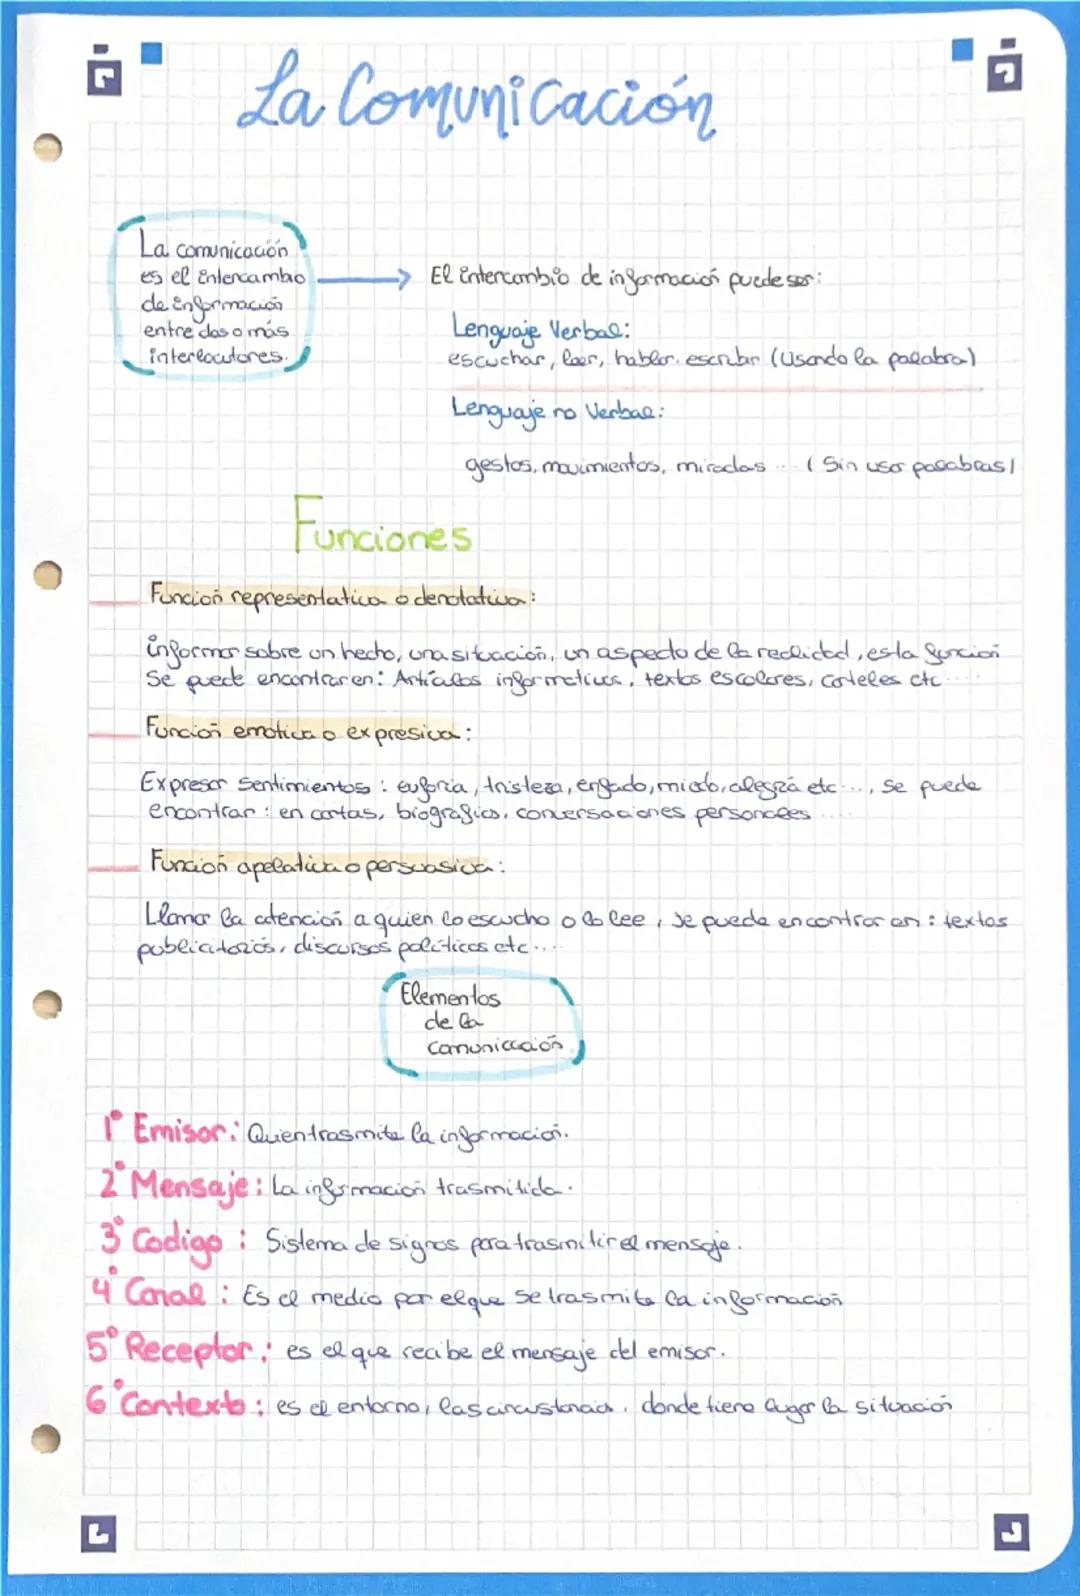 La Comunicación
La comunicación
es el intercambio
de información
entre dos o más
interlocutores.
El intercambio de información puede ser:
Lenguaje Verbal:
escuchar, leer, hablar. escribir (Usando la palabra)
Lenguaje no Verbal:
gestos, movimientos, miradas ... (Sin usar palabras)
Funciones
Función representativa o denotativa:
informar sobre un hecho, una situación, un aspecto de la realidad, esta función
Se puede encontrar en: Artículos informativos, textos escolares, carteles etc....
Función emotiva o expresiva:
Expresar Sentimientos: euforia, tristeza, enfado, miedo, alegría etc..., se puede
encontrar: en cartas, biografias, conversaciones personales ....
Función apelativa o persuasiva:
Llamar la atención a quien lo escucha o lo lee, se puede encontrar en: textos
publicitarios, discursos políticos etc....
Elementos
de la
comunicación
1º Emisor: Quien trasmite la información.
2º Mensaje: La información trasmitida.
3º Codigo: Sistema de signos para trasmitir el mensaje.
4º Canal: Es el medio por el que se trasmite la información
5º Receptor: es el que recibe el mensaje del emisor.
6º Contexto: es el entorno, las circustancias, donde tiene lugar la situación